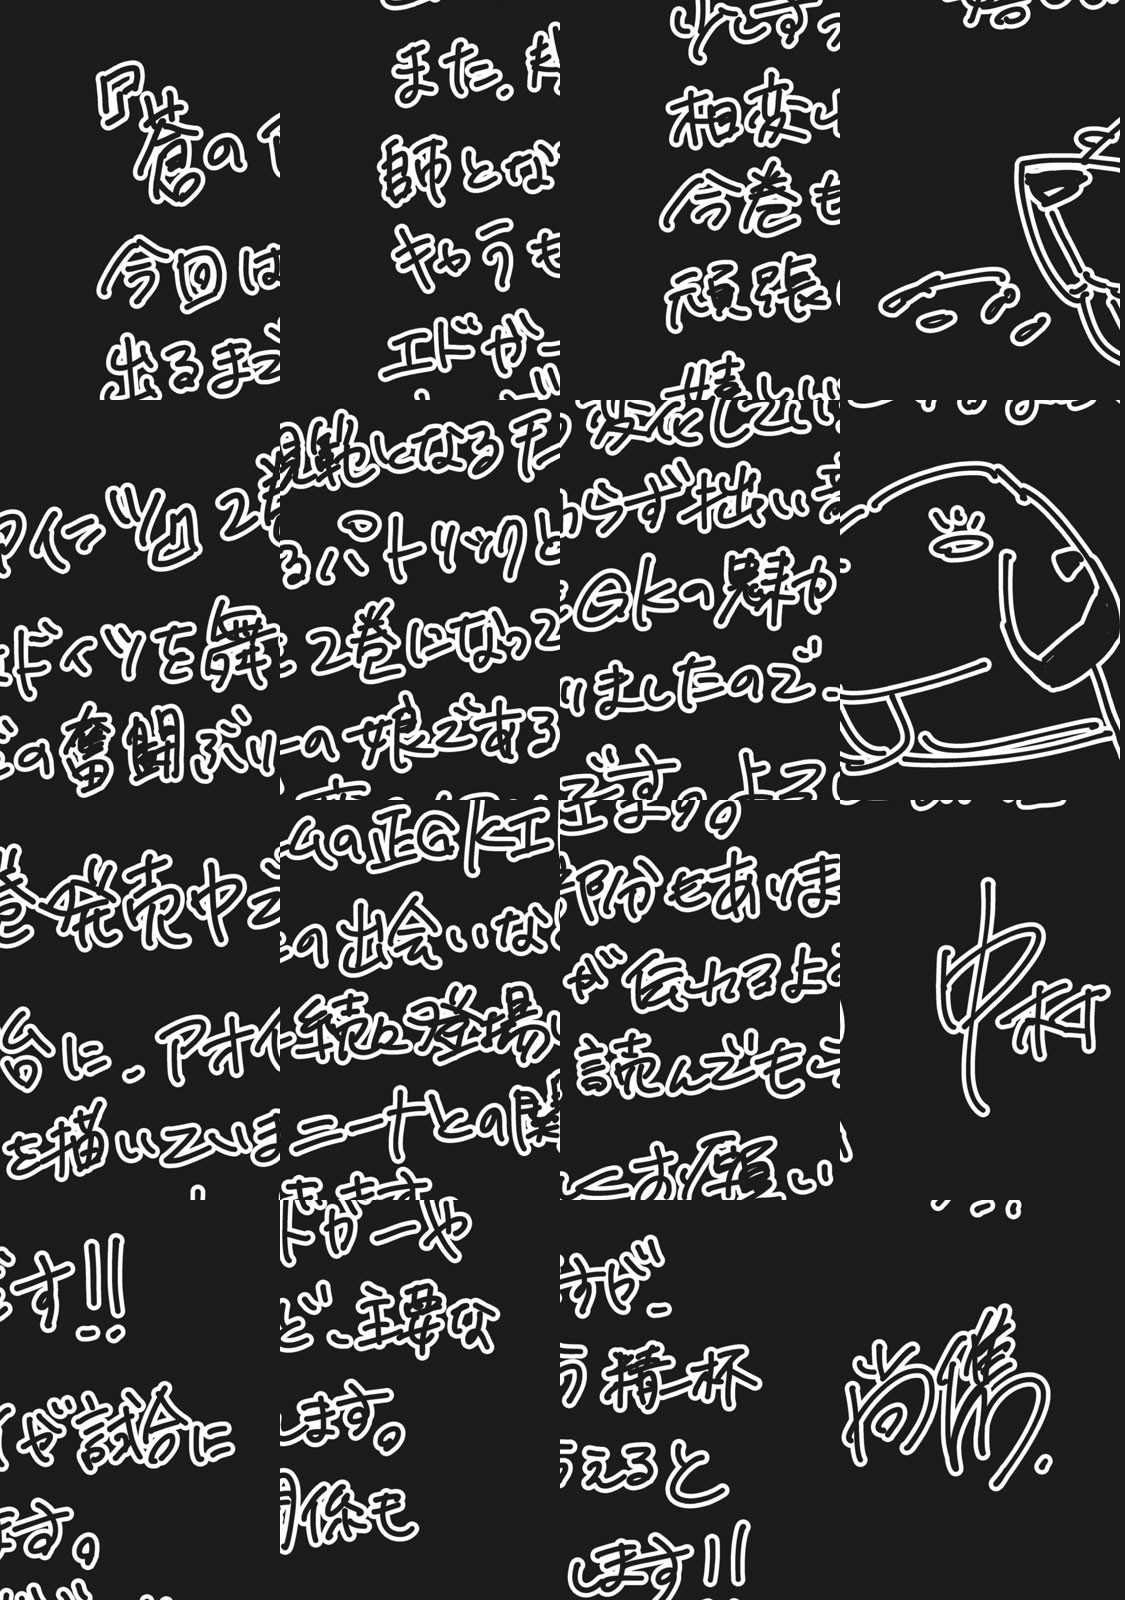 『蒼のアインツ』2巻発売中です!!
今回はドイツを舞台に、アオイが試合に
出るまでの奮闘ぶりを描いています。
また、規範となるチームの正GKエドガーや
師となるパトリックとの出会いなど、主要な
キャラも2巻になって続々登場します。
エドガーの娘であるニーナとの関係も
少しずつ変化していきます。
相変わらず拙い部分もありますが、
今巻もGKの魅力が伝わるよう精一杯
頑張りましたので、読んでもらえると
嬉しいです。よろしくお願いします!!
中村尚儁.